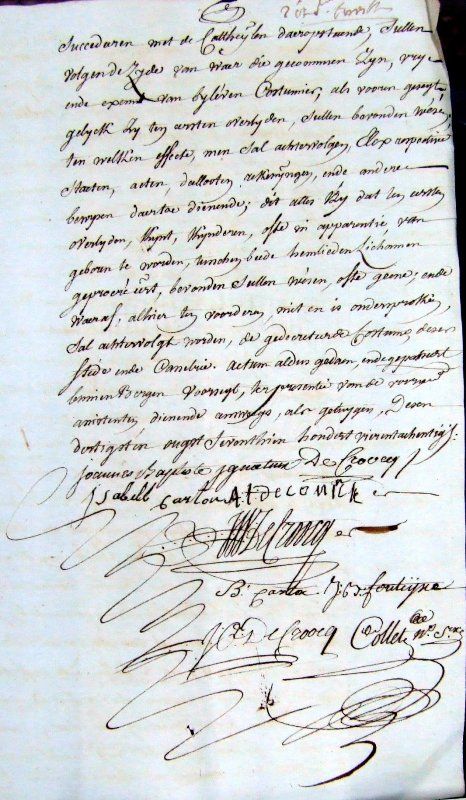 succederen met de Cattheylen daeropstaende, sullen
volgende zyde van waer die gecommen zyn, vry
ende exempt van byleven Costumier, als vooren geseyt
gelyck zy ten eersten overlyden, sullen bevonden wesen
ten welcken effecte, men sal achtervolgen, de respective
staeten, acten, ende andere
bewysen daertoe dienende; dit alles by dat ten eersten
overlyden, kynt, kynderen, ofte in apparentie van
geboren te worden, tusschen beide henlieden Lichamen
geprocreëert, bevonden sullen wesen, ofte geene; ende
waeraf, alhier ten voorderen, niet en is ondersproken,
sal achtervolgt worden, de gedecreteerde Costume deser
stede ende Casselrie. actum aldus gedaen, ende gepasseert
binnen Bergen voorseyt, ter presentie van de voorn
assistenten dienende als getuygen, desen
dertigsten ougst seventhien hondert vierentachentig
Joannes Baptiste ignatius De Croocq
Isabelle carlou A F deconinck
De Croocq
B. carlou
De Croocq Collet